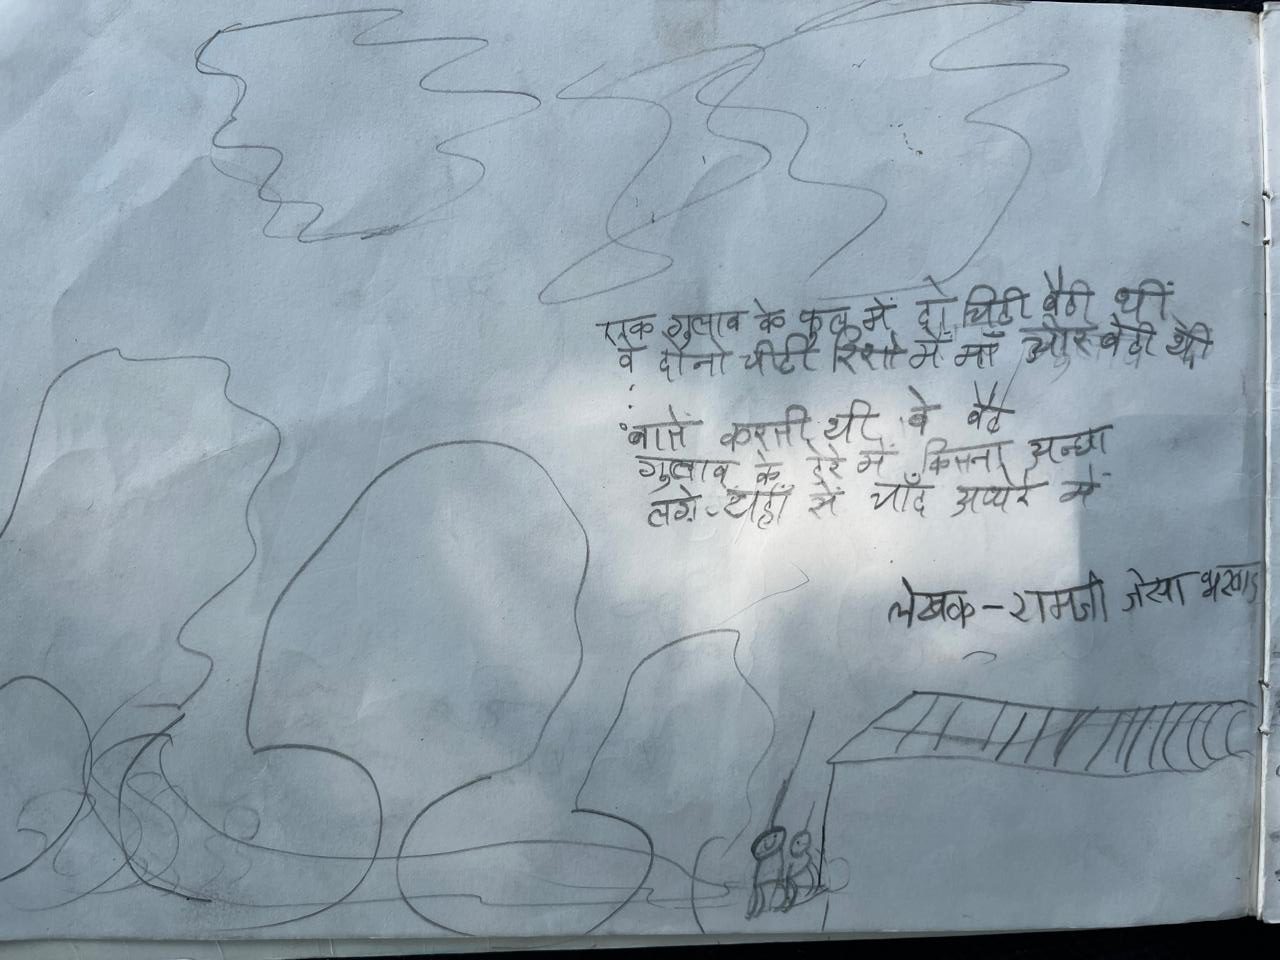 एक गुलाब के फुल में दो चिटी बैठी थीं
वे दोनो चीटी रिशते में माँ और बेटी थी
बातें करती थी वे बैठ
गुलाब के डेरे में कितना अच्छा
लगे-यहाँ से चाँद अंधेरे में
लेखक-रामजी जेसा भरवाड